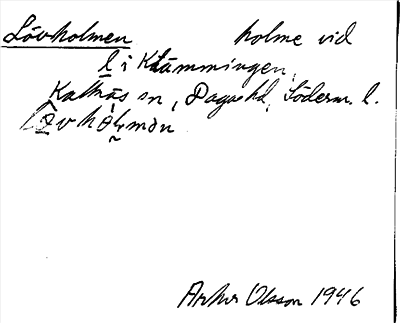 Lövholmen holme vid
l i Klämmingen,
Kattnäs sn, Daga hd, Söderm. l.
Arthur Olsson 1946